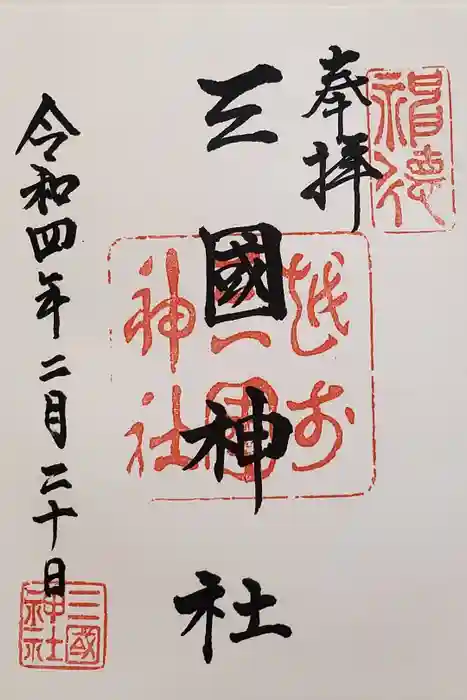 奉拝
三國神社
令和四年二月二十日
越前
三國
神社
三國
神社